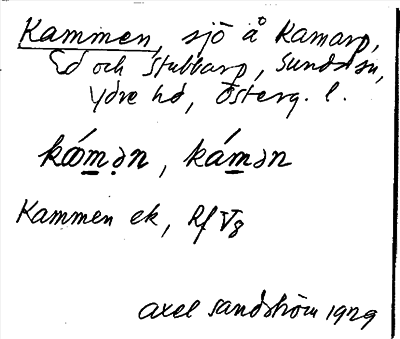 Kammen, sjö å Kamarp,
Sd och Stubbarp, Sunds sn,
Ydre hd, Österg. l.
kǿmən, kámən
Kammen ek, Rf V8
Axel Sandström 1929